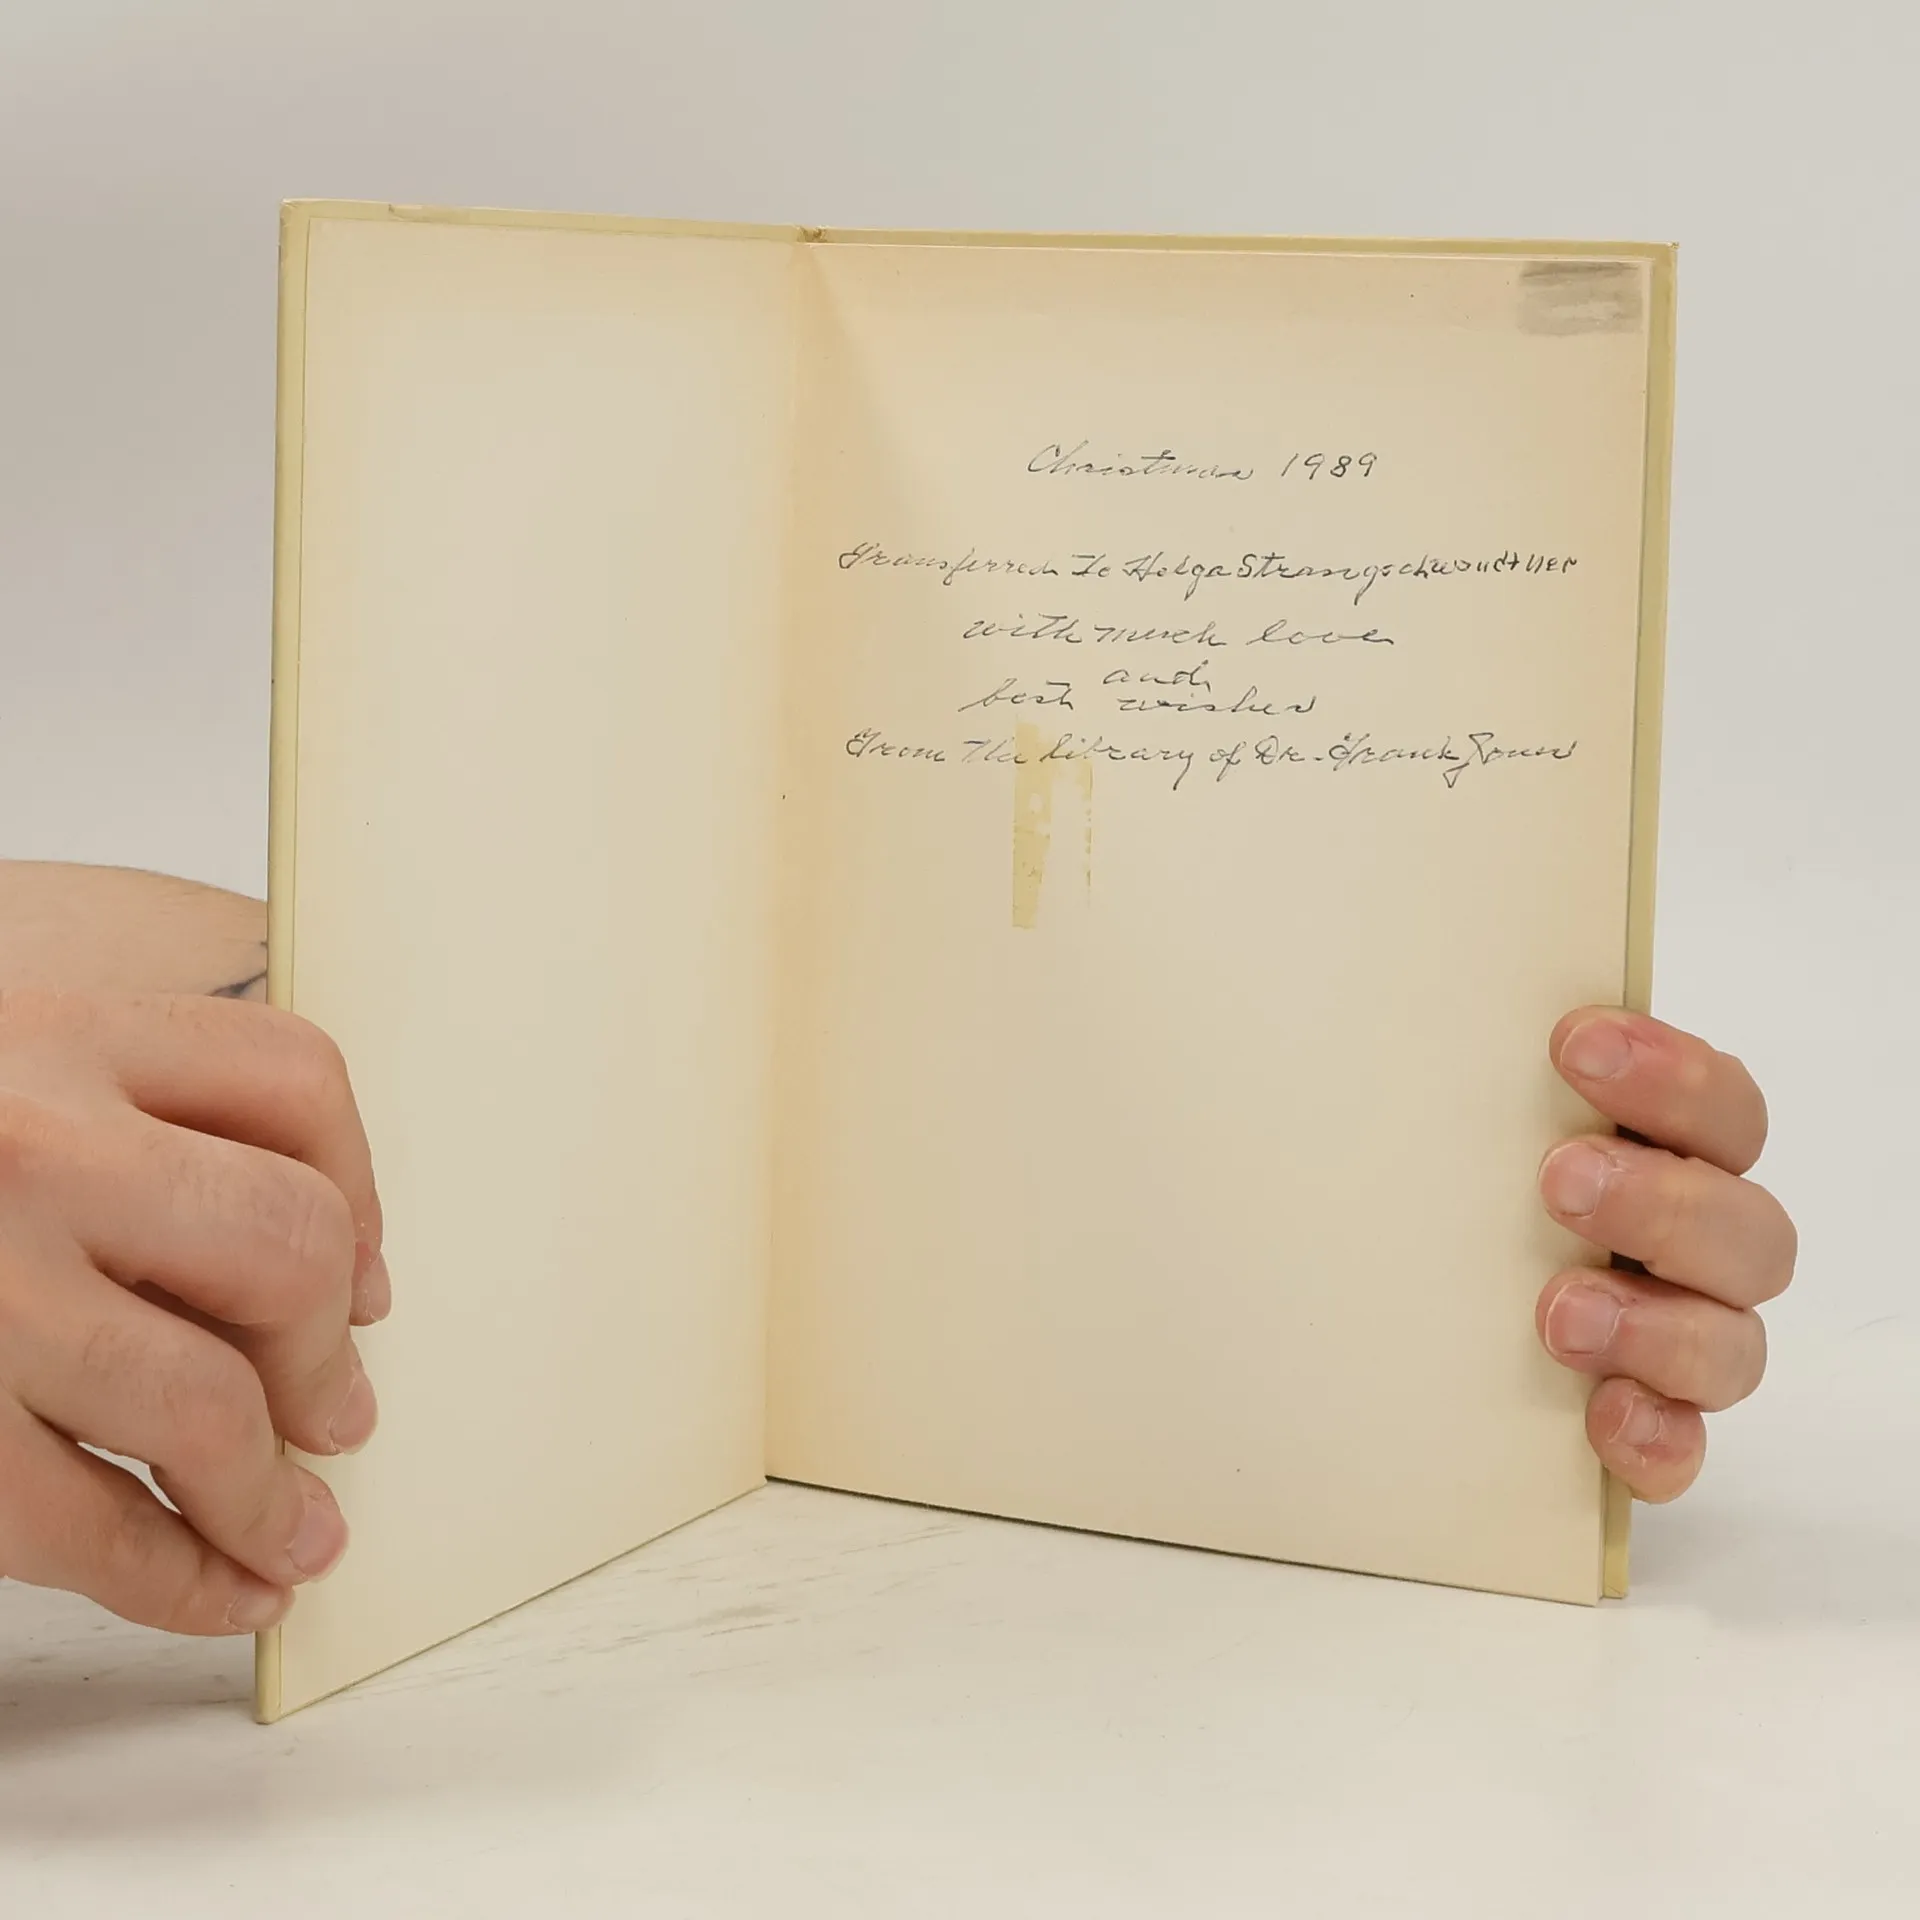 Christmas 1989
Transferred To Helga Strangschwandtner
with much love
and
best wishes
From The library of Dr. Frank